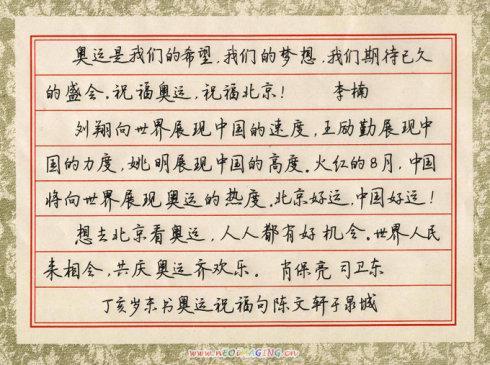 奥运是我们的希望,我们的梦想,我们期待已久
的盛会.祝福奥运,祝福北京! 李楠
刘翔向世界展现中国的速度,王励勤展现中
国的力度,姚明展现中国的高度.火红的8月,中国
将向世界展现奥运的热度.北京好运,中国好运!
想去北京看奥运,人人都有好机会.世界人民
来相会,共庆奥运齐欢乐. 肖保亮 司卫东
丁亥岁末书奥运祝福句陈文轩于泉城
www.neoimaging.cn